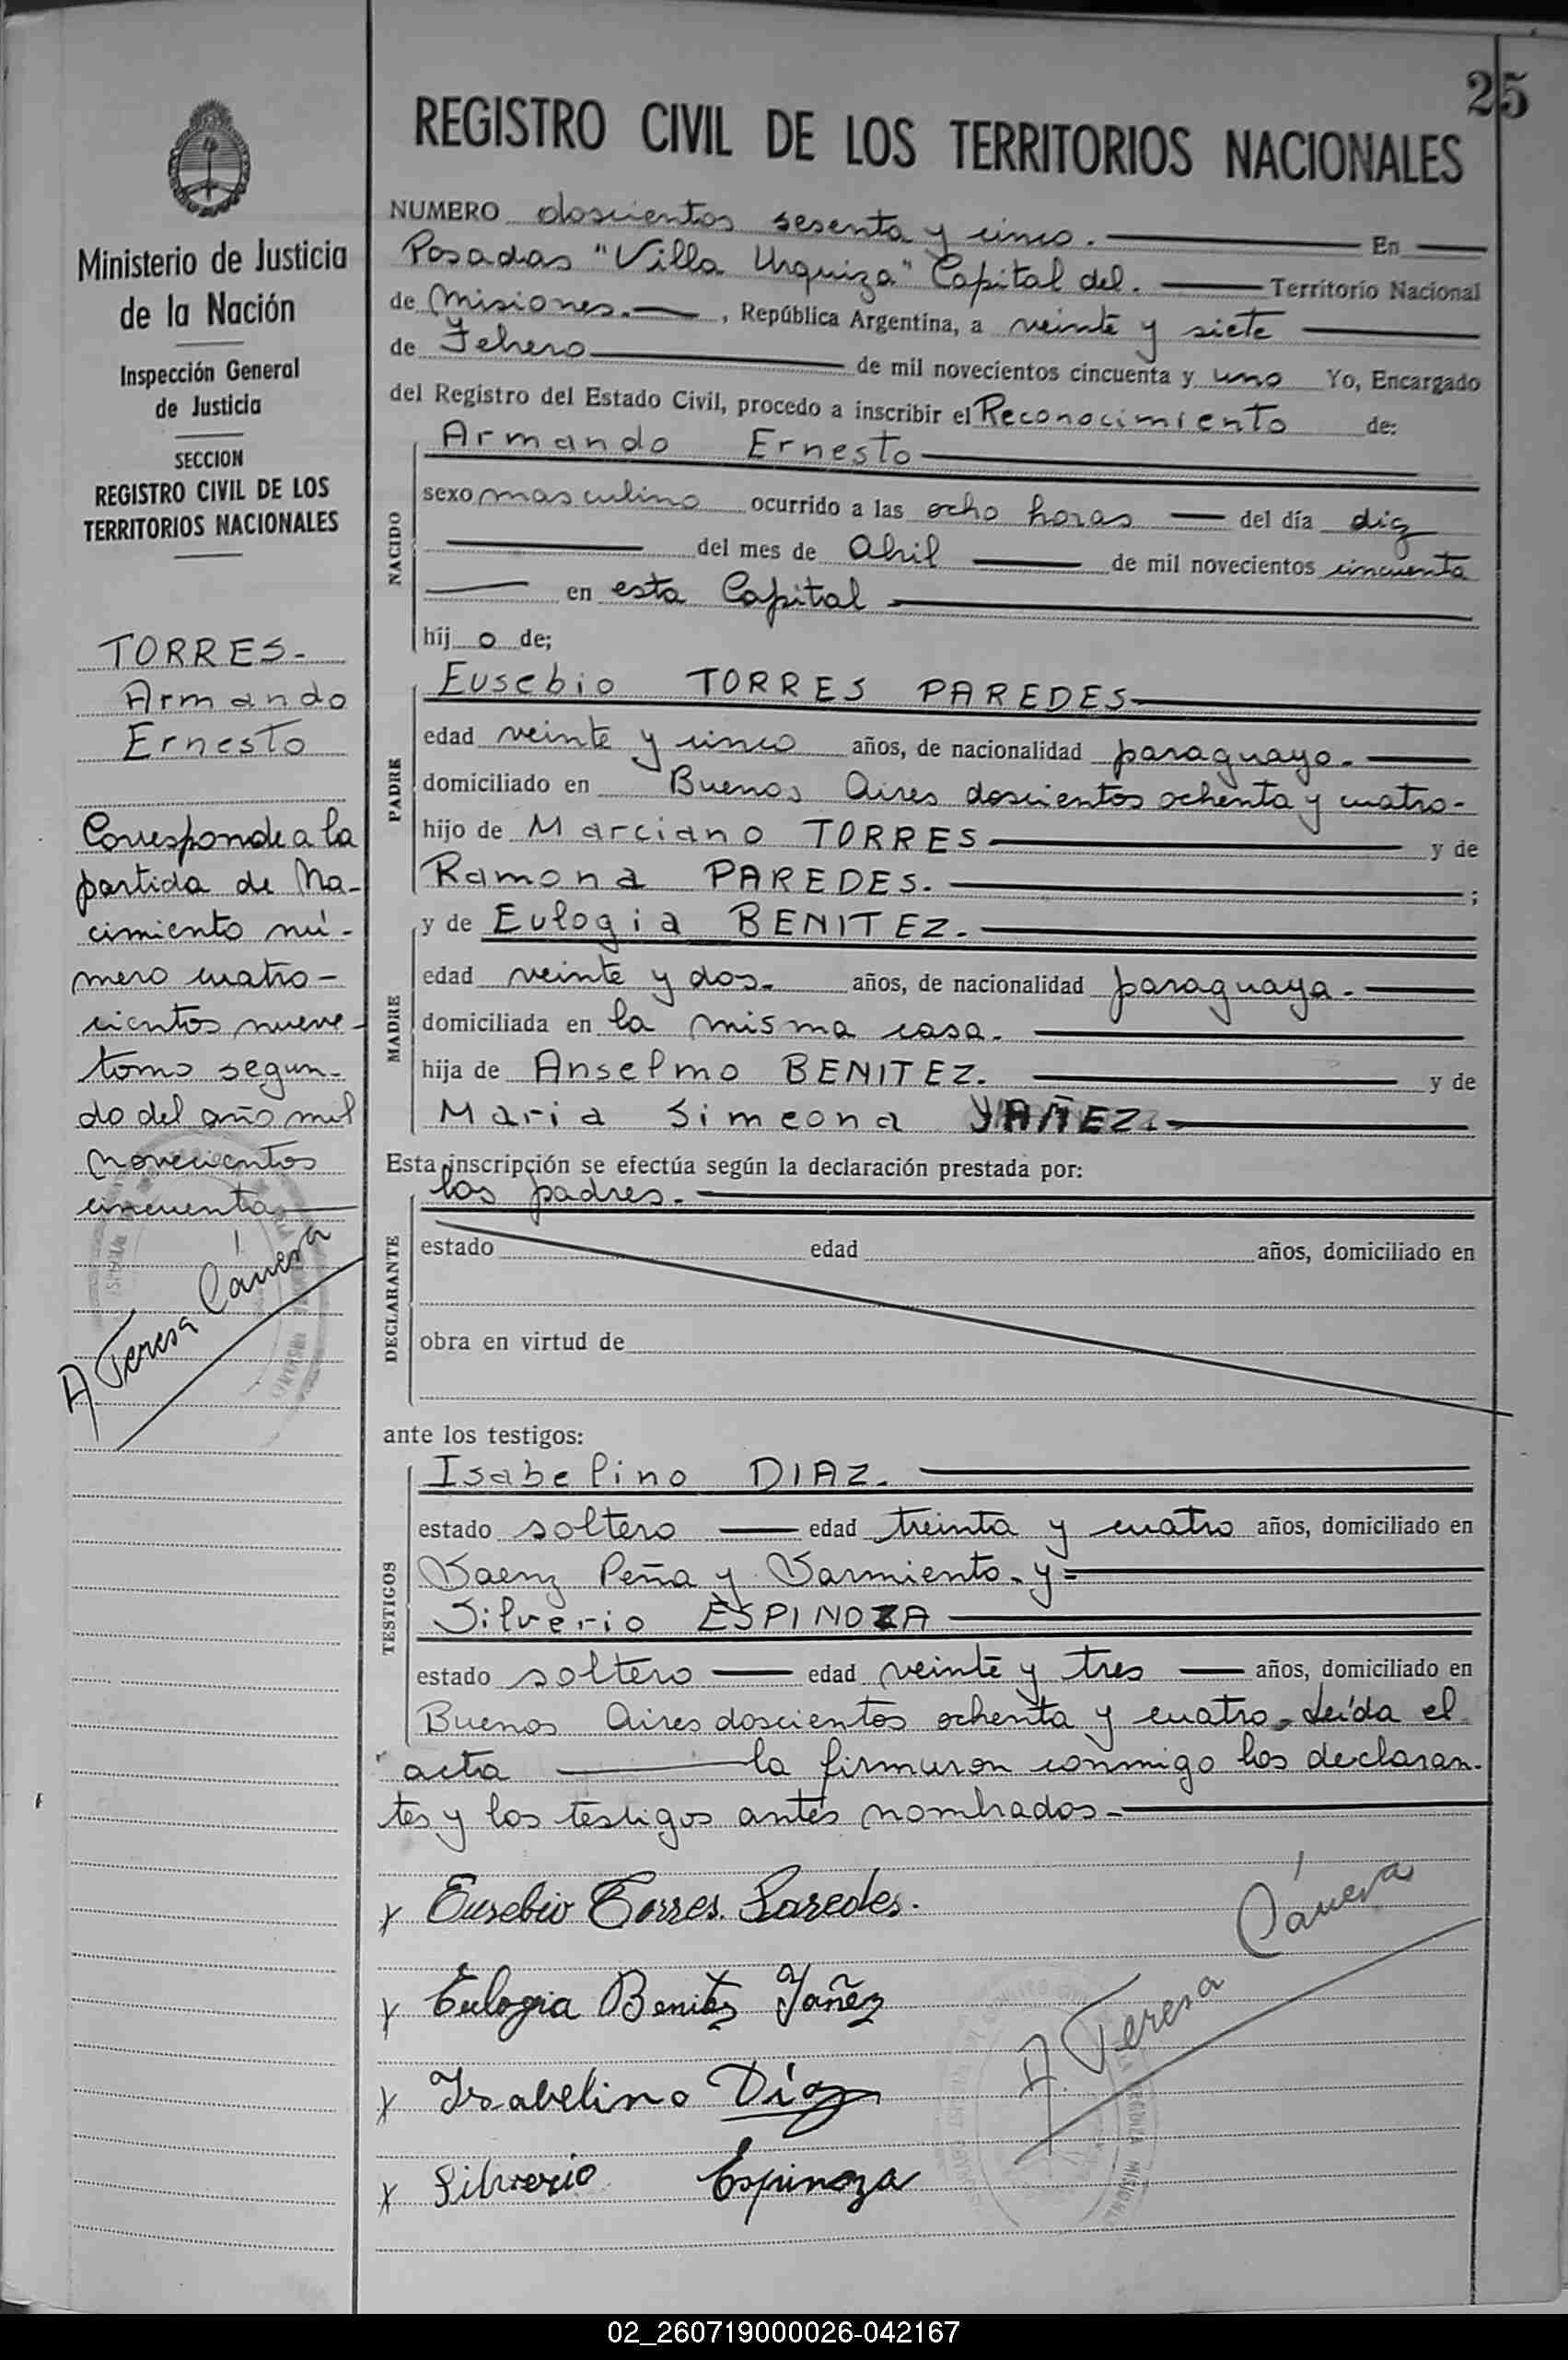 25
REGISTRO CIVIL DE LOS TERRITORIOS NACIONALES
Ministerio de Justicia
de la Nación
Inspección General
de Justicia
SECCION
REGISTRO CIVIL DE LOS
TERRITORIOS NACIONALES
TORRES.-
Armando
Ernesto
Corresponde a la
partida de Na-
cimiento nú-
mero cuatro-
cientos nueve-
tomo segun-
do del año mil
novecientos
cincuenta
A Teresa Cánesa
NUMERO doscientos sesenta y cinco. En
Posadas "Villa Urquiza" Capital del. Territorio Nacional
de Misiones. , República Argentina, a veinte y siete
de Febrero de mil novecientos cincuenta y uno Yo, Encargado
del Registro del Estado Civil, procedo a inscribir el Reconocimiento de:
NACIDO
Armando Ernesto
sexo masculino ocurrido a las ocho horas del día diez
del mes de Abril de mil novecientos cincuenta
en esta Capital
hij o de;
PADRE
Eusebio TORRES PAREDES
edad veinte y cinco años, de nacionalidad paraguayo.
domiciliado en Buenos Aires doscientos ochenta y cuatro-
hijo de Marciano TORRES y de
Ramona PAREDES. ;
MADRE
y de Eulogia BENITEZ.
edad veinte y dos. años, de nacionalidad paraguaya.
domiciliada en la misma casa.
hija de Anselmo BENITEZ. y de
Maria Simeona YAÑEZ.
Esta inscripción se efectúa según la declaración prestada por:
DECLARANTE
los padres.
estado edad años, domiciliado en
obra en virtud de
ante los testigos:
TESTIGOS
Isabelino DIAZ.
estado soltero edad treinta y cuatro años, domiciliado en
Saenz Peña y Sarmiento. y
Silverio ESPINOZA
estado soltero edad veinte y tres años, domiciliado en
Buenos Aires doscientos ochenta y cuatro. Leída el
acta la firmaron conmigo los declaran-
tes y los testigos antes nombrados.
x Eusebio Torres Paredes.
x Eulogia Benitez Yañez
x Isabelino Díaz
x Silverio Espinoza
A. Teresa Cánesa
02_260719000026-042167